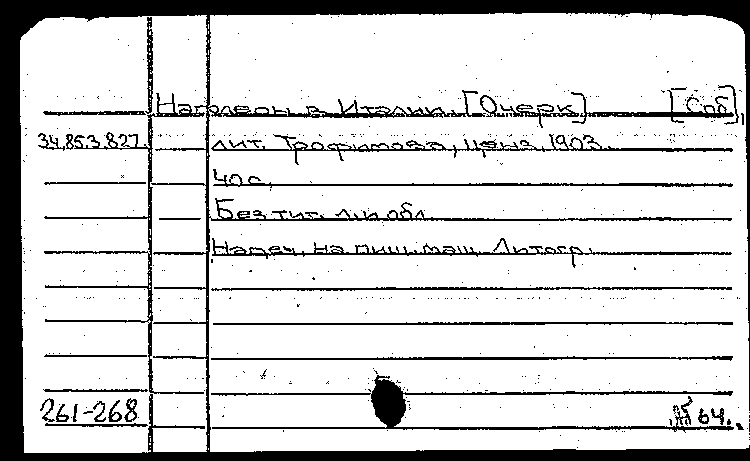 Наполеон в Италии. [Очерк] [Спб],
34.853.827. лит. Трофимова, цена, 1903.
40 с.
Без тит. л. и обл.
Напеч. на пиш. маш. Литогр.
261-268 64.